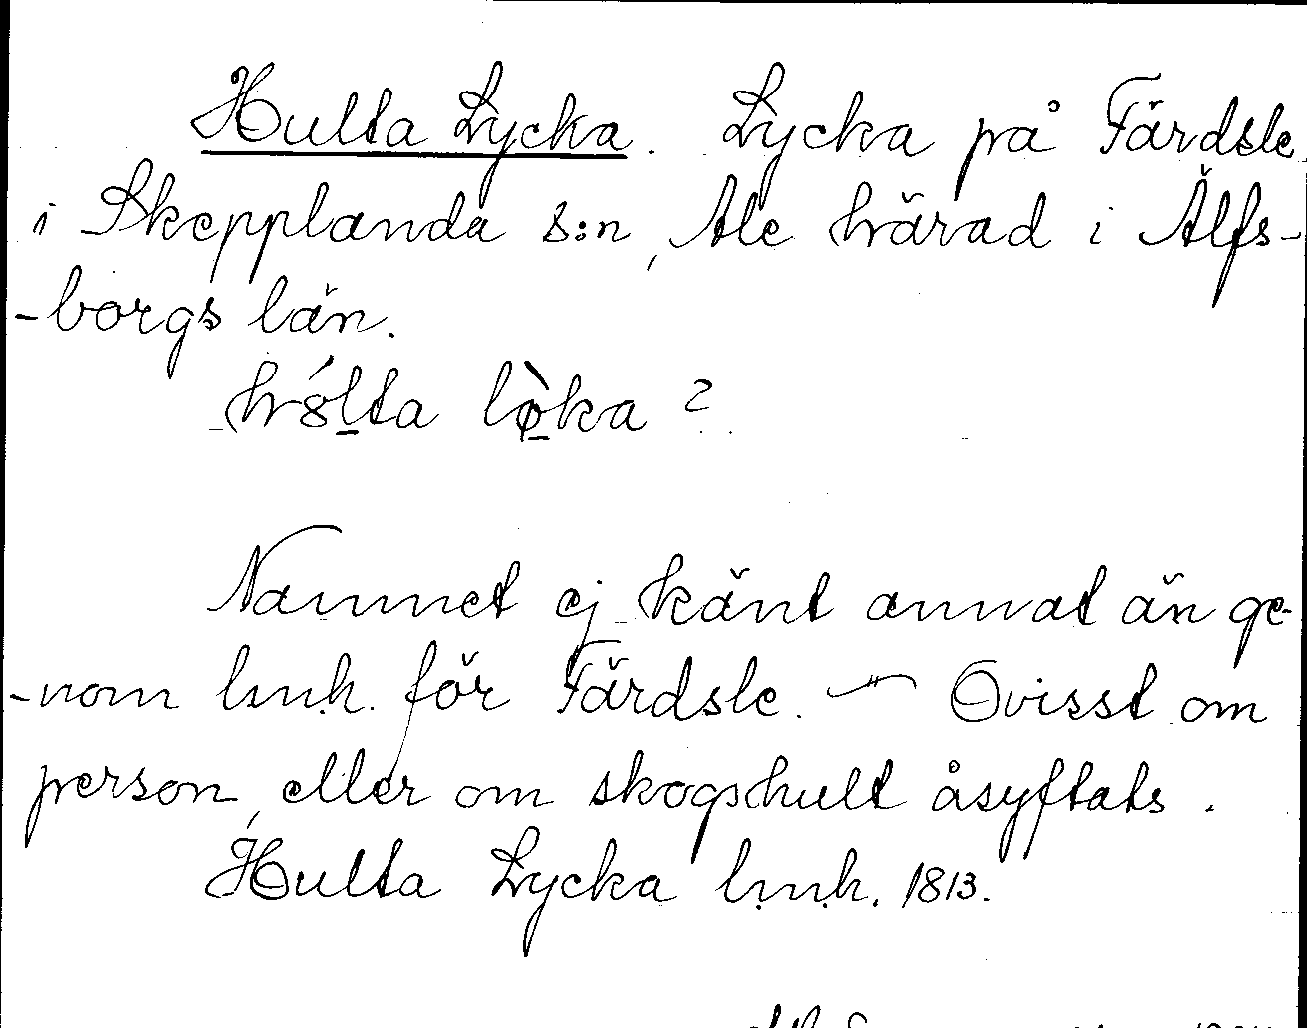 Hulta Lycka. Lycka på Färdsle
i Skepplanda s:n, Ale härad i Älfs-
-borgs län.
hólta lø̀ka ?
Namnet ej känt annat än ge-
-nom lmh. för Färdsle. — Ovisst om
person, eller om skogshult åsyftats.
Hulta Lycka lmh. 1813.